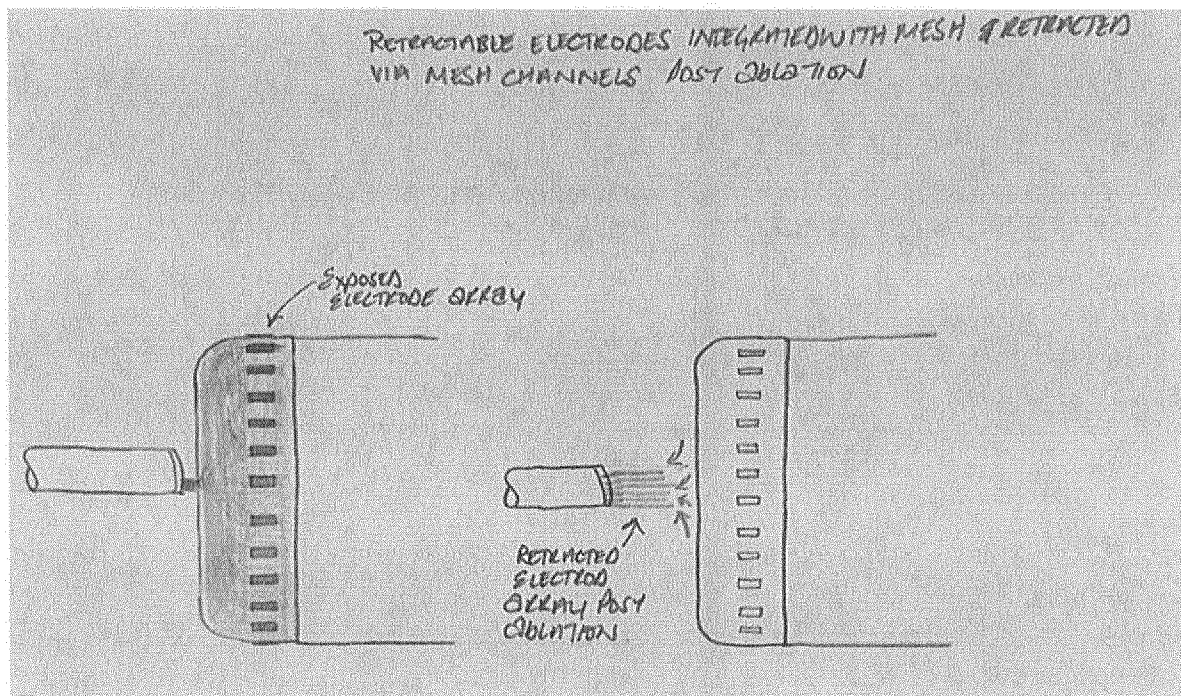 RETRACTABLE ELECTRODES INTEGRATED WITH MESH & RETRACTED
VIA MESH CHANNELS POST ABLATION
EXPOSED
ELECTRODE ARRAY
RETRACTED
ELECTROD
ARRAY POST
ABLATION